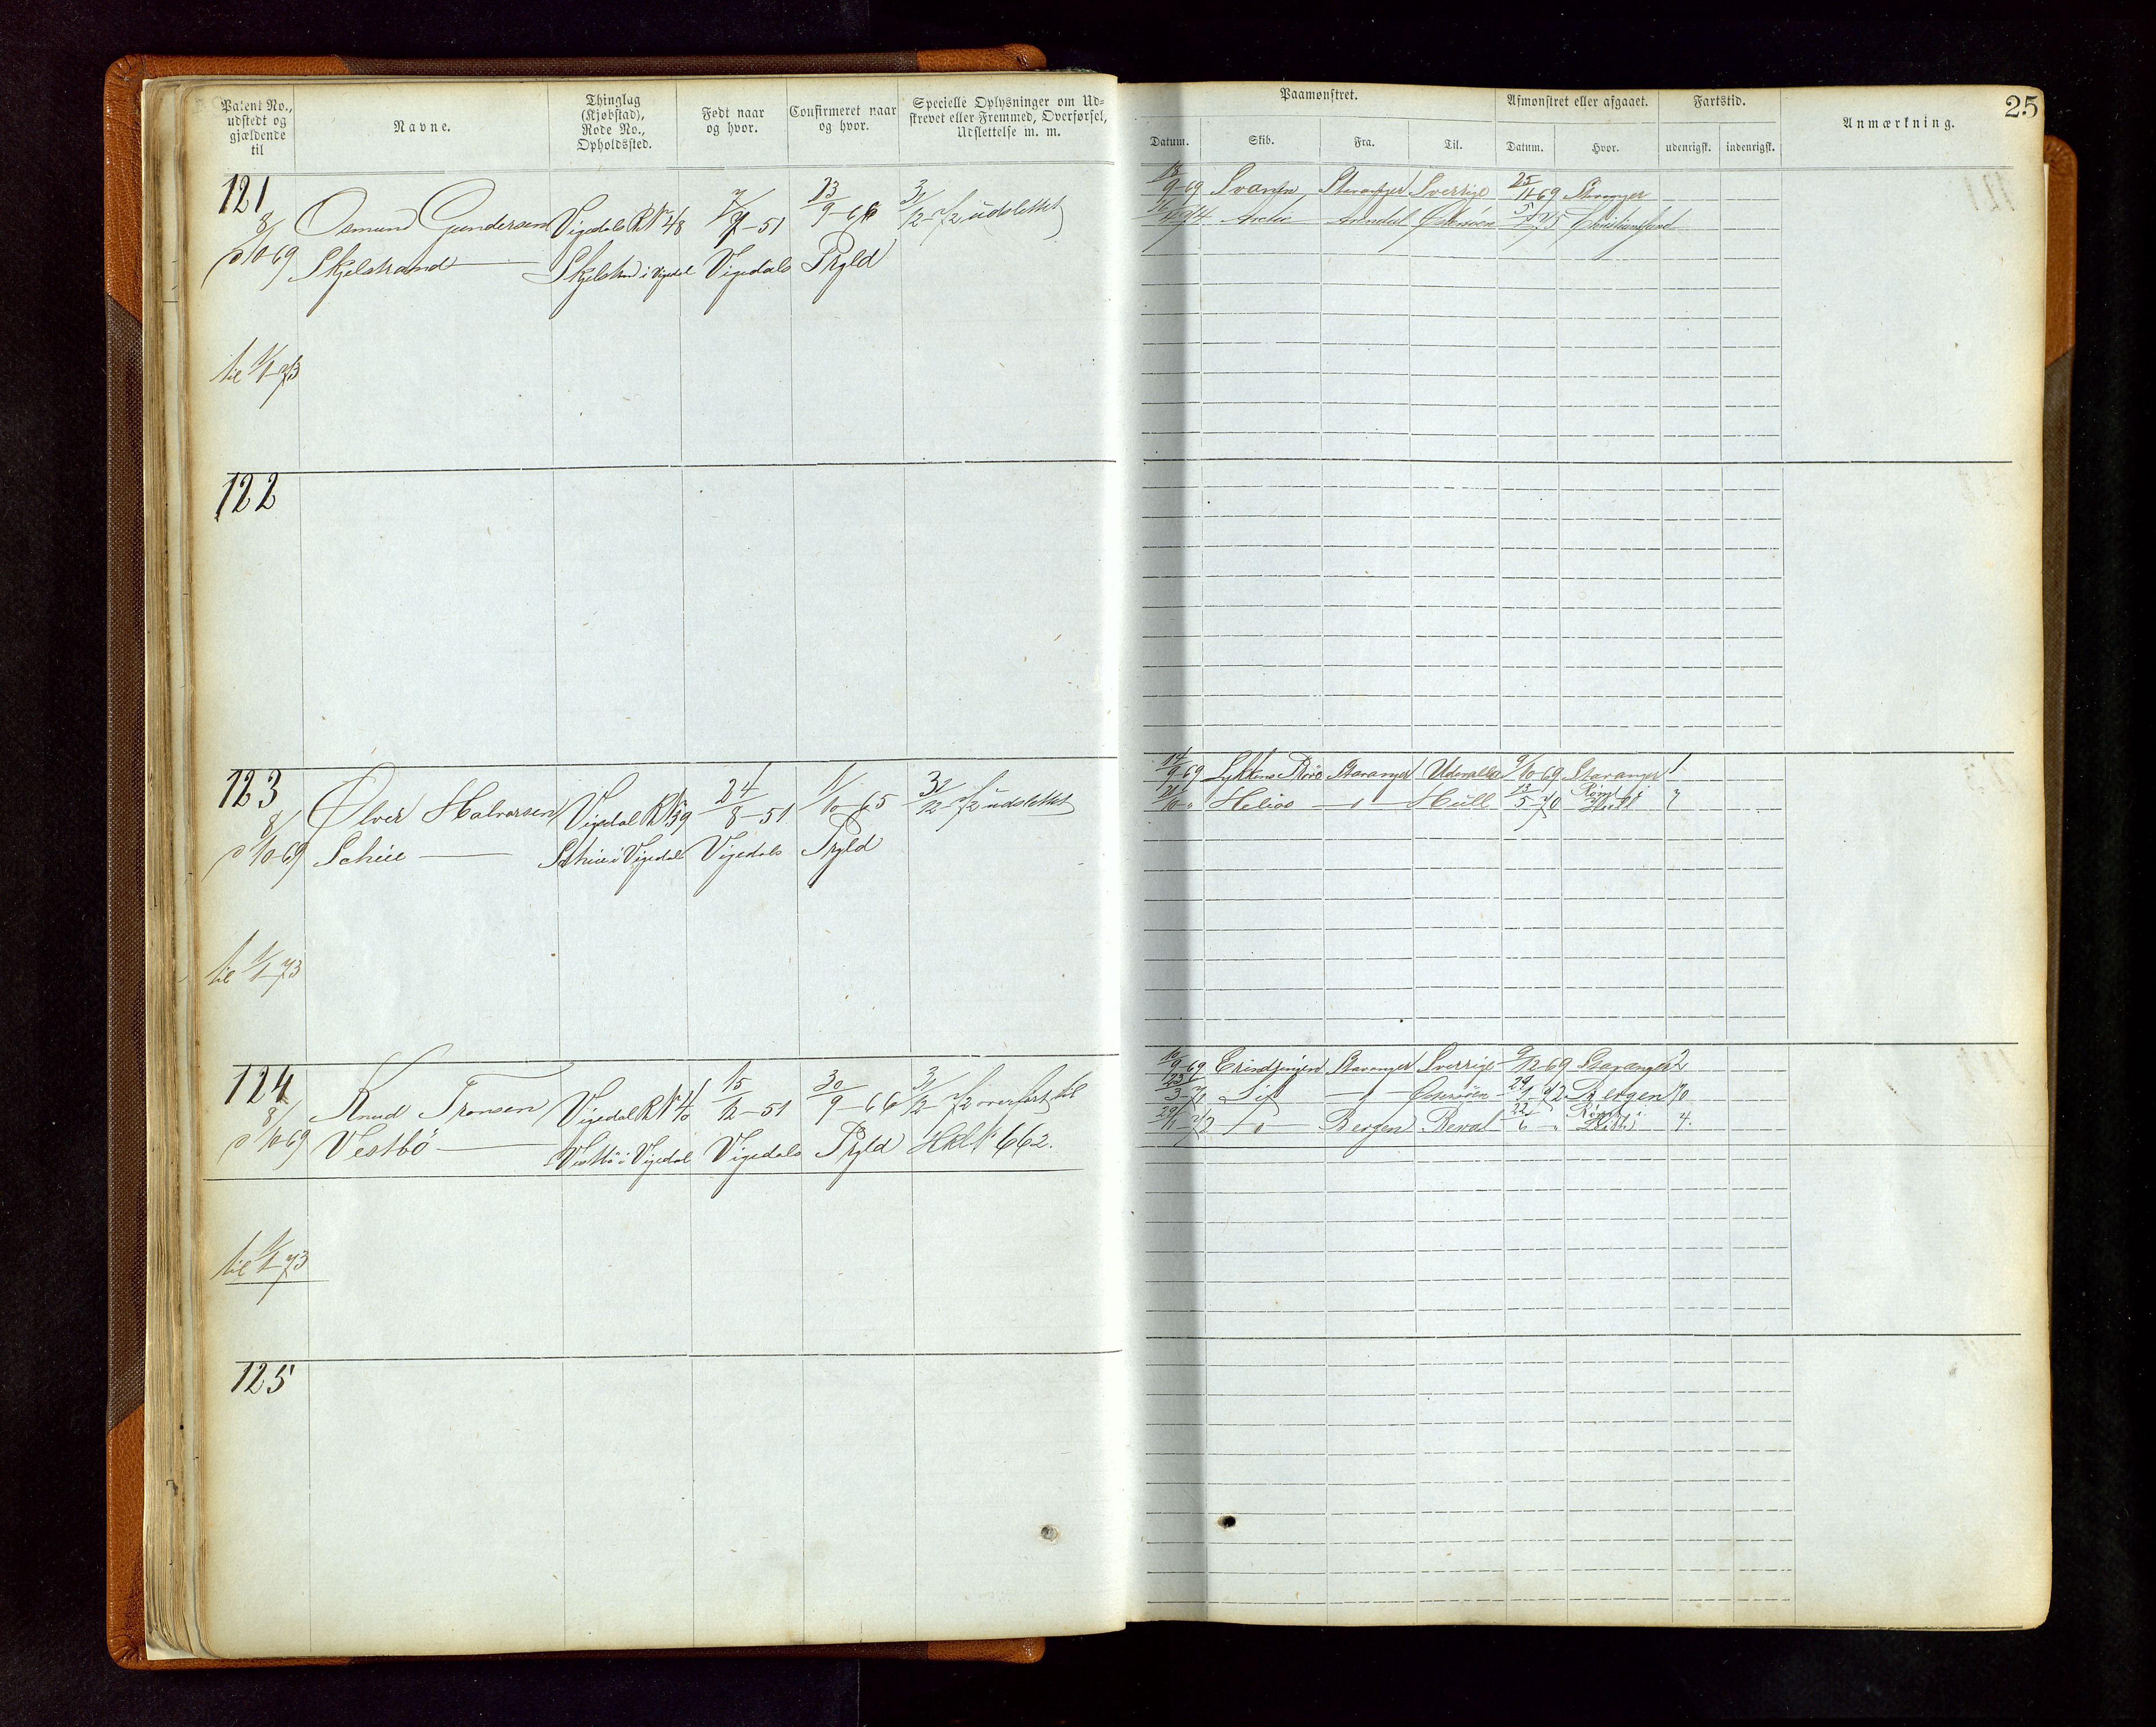 Patent No., udstedt og gjældende til
Navne.
Thinglag (Kjøbstad), Rode No., Opholdssted.
Født naar og hvor.
Confirmeret naar og hvor.
Specielle Oplysninger om Udstrevet eller Fremmed, Overførsel, Udslettelse m. m.
Paamønstret.
Afmønstret eller afgaaet.
Fartstid.
Anmærkning.
25
Datum.
Skib.
Fra.
Til.
Datum.
Hvor.
udenrigsk.
indenrigsk.
121
8/10-69
Osmund Gundersen
Vigedals R No 48
7/7-51
13/9-66
31/12-72 udslettet
Skjelstrand
Skjelstrand i Vigedal
Vigedals
Prgld
til 1/1-73
9-69 Svanen Stavanger Sverige 25/11-69 Stavanger
74 Arctic Arendal Østersøen 75 Christianssand
122
123
8/10-69
Ølver Halvorsen
Vigedal R No 39
24/8-51
1/10-65
31/12-72 udslettet
Scheie
Scheie i Vigedal
Vigedals
Prgld
til 1/1-73
14/9-69 Lykkens Prøve Stavanger Udevalla 9/10-69 Stavanger 1
21/10-" Helios -"- Hull 13/5-70 Rømt i Hull 7
124
8/10-69
Knud Tronsen
Vigedal R No 40
15/12-51
30/9-66
31/12-72 overført til
Vestbö
Vestbö i Vigedal
Vigedals
Prgld
Hkl No 662.
til 1/1-73
16/9-69 Erindringen Stavanger Sverrige 9/12-69 Stavanger 2
23/3-70 -"- Østersöen 29/1-72 Bergen 10
29/1-72 Do Bergen Reval 22/6-" Rømt i 4
125